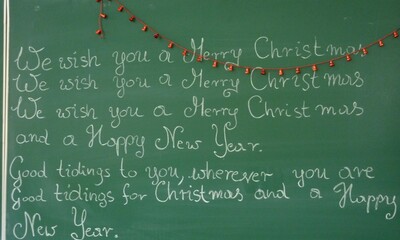 We wish you a Merry Christmas
We wish you a Merry Christmas
We wish you a Merry Christmas
and a Happy New Year.
Good tidings to you, wherever you are
Good tidings for Christmas and a Happy
New Year.